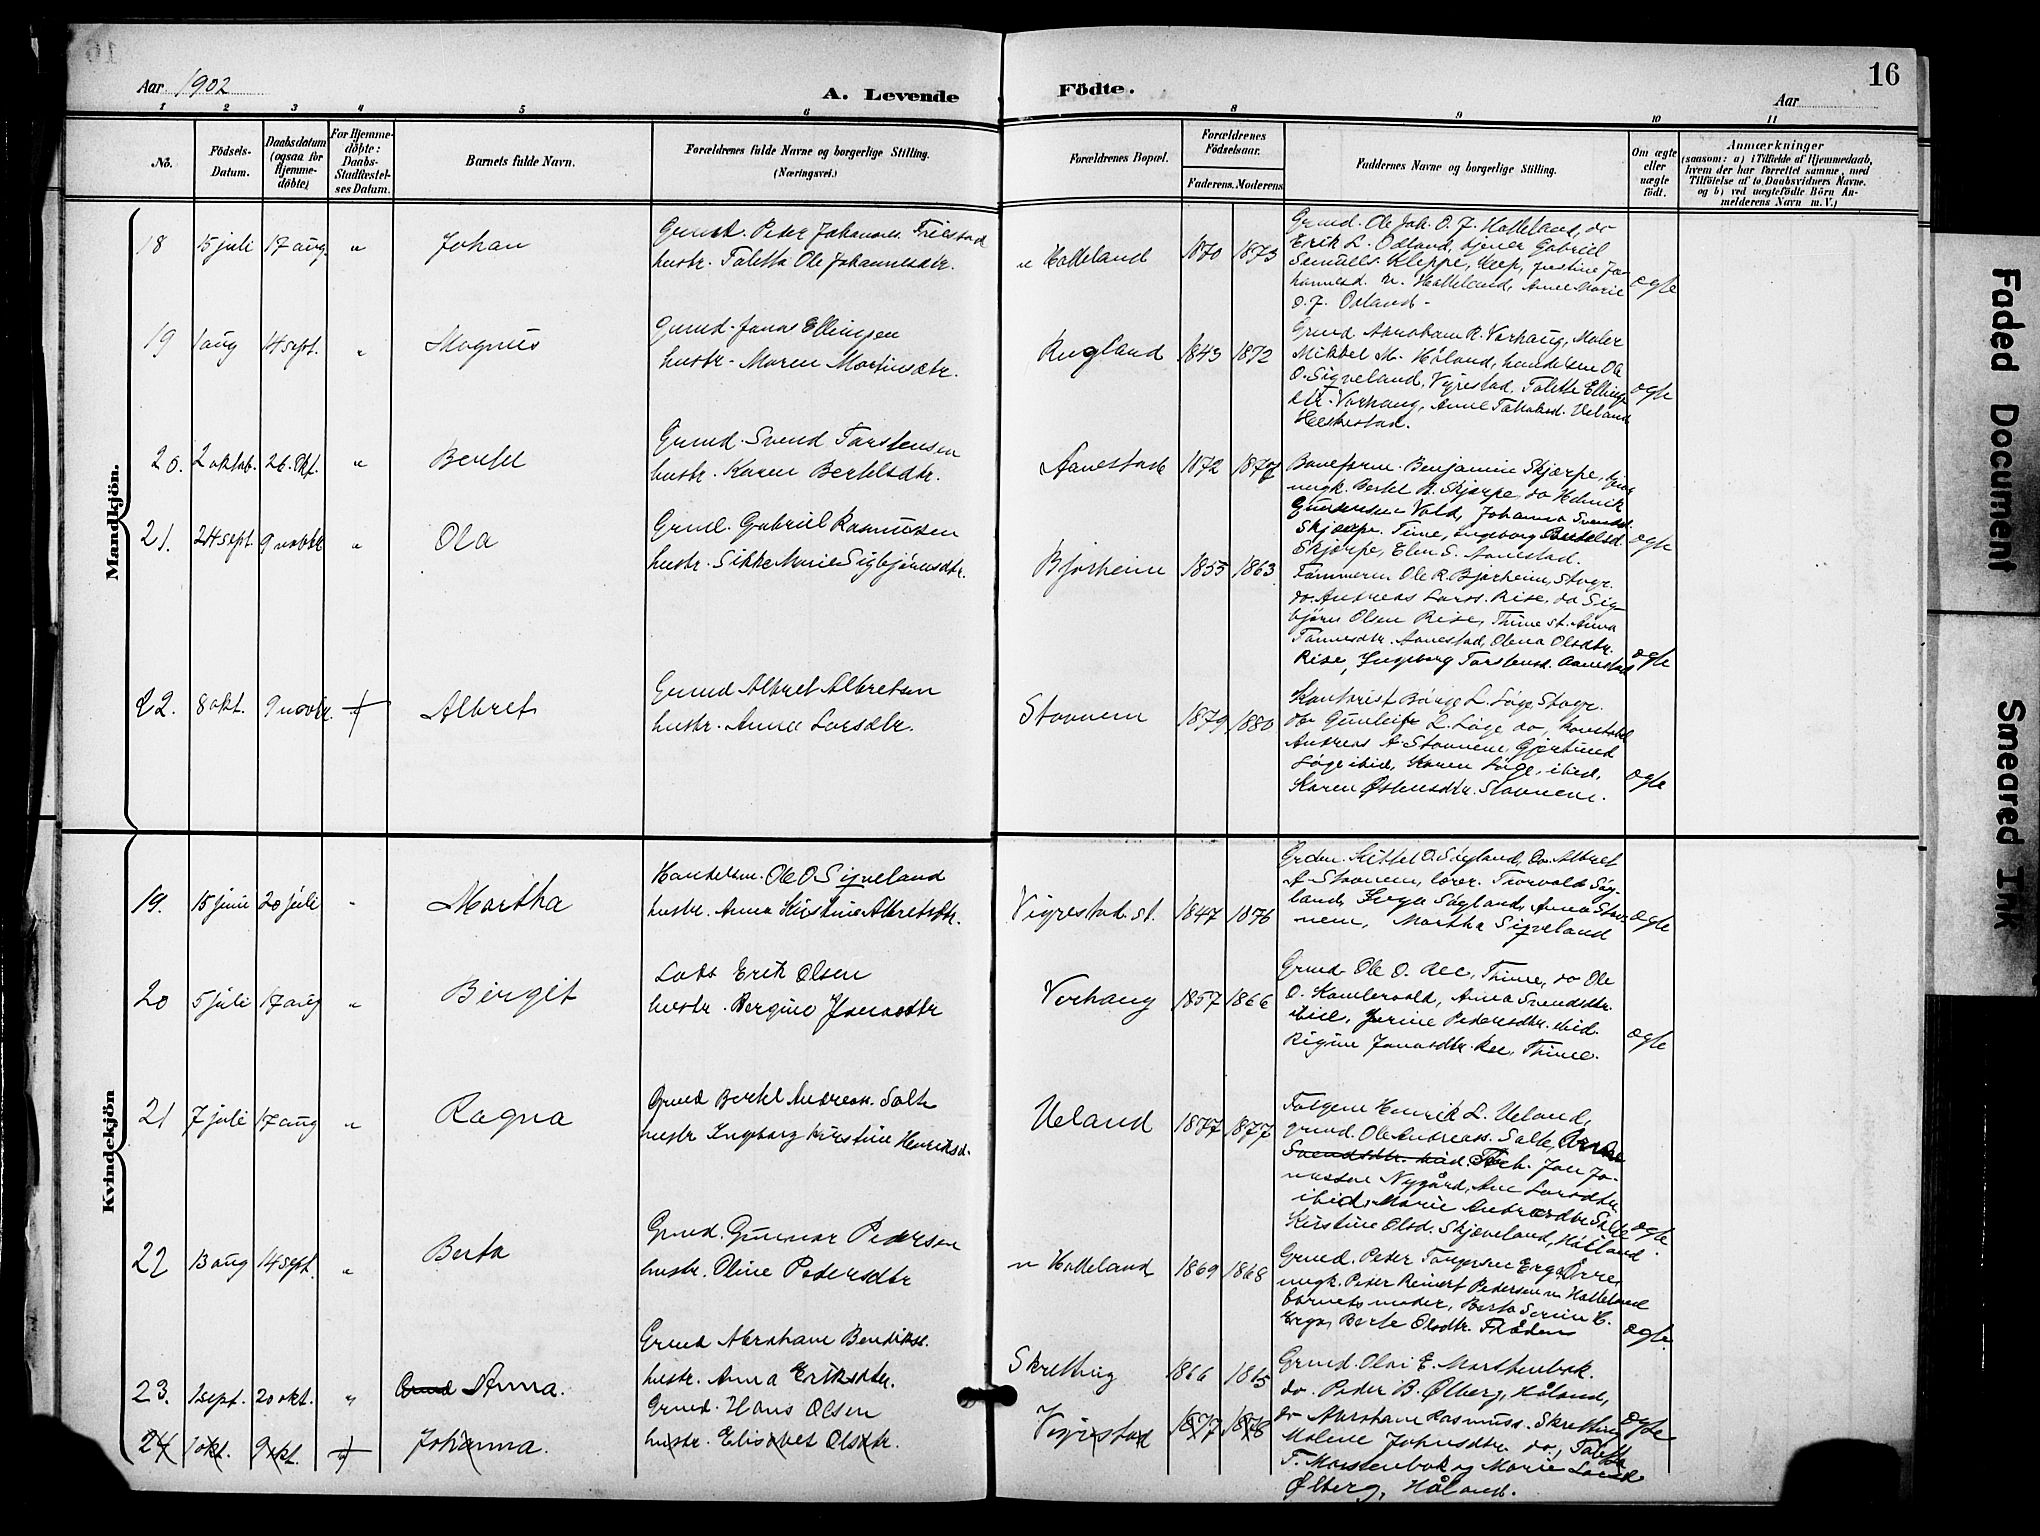 16
Aar 1902
A. Levende
Födte.
Aar
1 2 3 4 5 6 8 9 10 11
No.
Födsels-Datum.
Daabsdatum (ogsaa for Hjemme-döbte)
For Hjemme-döbte: Daabs-Stadfæstel-ses Datum.
Barnets fulde Navn.
Forældrenes fulde Navne og borgerlige Stilling.
(Næringsvei.)
Forældrenes Bopæl.
Forældrenes Födselsaar.
Faderens. Moderens
Faddernes Navne og borgerlige Stilling.
Om ægte eller uægte födt.
Anmærkninger
(saasom: a) i Tilfælde af Hjemmedaab,
hvem der har forrettet samme, med
Tilföielse af to Daabsvidners Navne.
og b) ved uægtefödte Börn An-
melderens Navn m. V.)
Mandkjön.
18 15 juli 17 aug. " Johan
Grund. Peder Johannes. Friestad
hustr. Taletta Ole Johannesdtr.
n Hatteland 1870 1873
Grund. Ole Joh. O. J. Hatteland, do
Erik L. Odland, tjener Gabriel
Samuels. Kleppe, Klep,
n. Hatteland, Anne Marie
O. J. Odland
ægte
19 1 aug 14 sept. " Magnus
Grund. Jonas Ellingsen
hustr. Maren Martinsdtr.
Rugland 1843 1872
Grund Abraham R. Varhaug, Maler
Mikkel M. Håland, handelsm Ole
O. Sigveland, Vigrestad, Talette Ellings
dtr. Varhaug, Anne Ueland
Heskestad.
ægte
20. 2 oktob. 26. Okt. " Bertel
Grund. Svend Tarstensen
hustr. Karen Bertelsdtr.
Aanestad 1872 1877
Benjamin Skjærpe,
ungk. Bertel B. Skjærpe, do Henrik
Vold, Johanna Svends
Skjærpe, Time, Ingeborg Bertelsd
Skjærpe, Elen S. Aanestad.
ægte
21. 24 sept. 9 novbr " Ola
Grund. Gabriel Rasmussen
hustr. Sikke Marie Sigbjörnsdtr.
Bjorheim 1855 1863
Tömmerm Ole R. Bjorheim, Stvgr.
do. Andreas Larss. Rise, do Sig-
björn Olsen Rise, Thime st. Anna
Aanestad, Olena Olsdtr.
Rise, Ingeborg Tarstensd. Aanestad
ægte
22. 8 okt. 9 novbr. Albret
Grund Albret Albretsen
hustr. Anna Larsdtr.
Stavnem 1879 1880
Kontorist Börge L. Löge Stvgr.
do Gunleif L. Löge do, konstabel
Andreas A. Stavnem, Gjertrud
Löge ibid, Karen Löge, ibid,
Karen Østensdtr. Stavnem.
ægte
Kvindekjön
19. 15 juni 20 juli " Martha
Handelsm. Ole O. Sigveland
hustr. Anna Kirstine Albretsdtr.
Vigrestad st. 1847 1876
Grdm. Kittel O. Søyland, do. Albret
A. Stavnem, lærer. Torvald Søy-
land, Inga Søyland, Anna Stav-
nem, Martha Sigveland
ægte
20 5 juli 17 aug " Birgit
Lods Erik Olsen
hustr. Bergine Jonasdtr
Varhaug 1857 1866
Grund. Ole O. Ree, Thime, do Ole
O. Kamlevold, Anna Svendsdtr.
ibid, Jorine Pedersdtr. ibid.
Rigine Jonasdtr. Ree, Thime.
ægte
21 7 juli 17 aug " Ragna
Grund Bertel Andreas. Salte
hustr Ingeborg Kirstine Henriksd.
Ueland 1877 1877
Folgem Henrik L. Ueland,
grund. Ole Andreass. Salte,
Svendsdtr. ibid. Jon Jo-
nassen Nygård, Ane Larsdtr
ibid, Marie Andreasdtr Salte
Kirstine Olsd. Skjæveland, Håland.
ægte
22 13 aug 14 sept. " Berta
Grund. Gunnar Pedersen
hustr. Oline Pedersdtr
n Hatteland 1869 1868
Grund. Peder Torgersen Erga, Orre,
ungk. Peder Reinert Pedersen n. Hatteland
barnets moder, Berta Serine H.
Erga, Berte Olsdtr.
ægte
23. 1 sept. 20 okt. " Grund Anna.
Grund Abraham Bendikss.
hustr. Anna Eriksdtr.
Skretting 1866 1865
Grund. Olai E.
do. Peder B. Ølberg, Håland,
do Abraham Rasmuss. Skretting
Malene Johnsdtr do, Taletta
T. og Marie Larsd
Ølberg, Håland.
ægte
24 1 okt. 9 okt. Johanna.
Grund. Hans Olsen
hustr. Elisabet Olsdtr.
Vigrestad 1877 1878
Faded Document
Smeared Ink